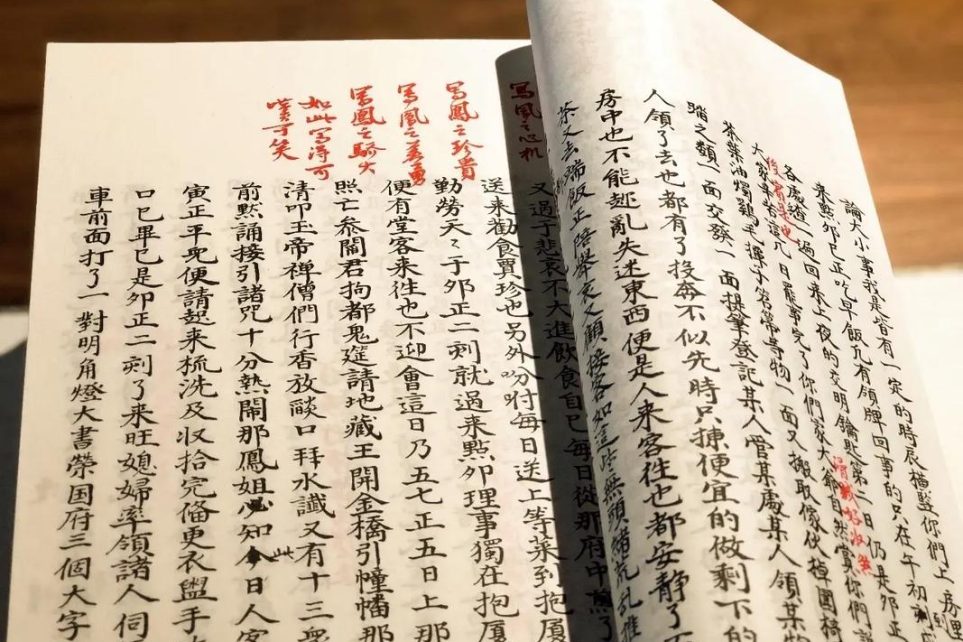 論大小事我是皆有一定的時辰橫豎你們上房里
來點夘巳正吃早飯凢有領牌回事的只在午初刻
各處查一遍回來上夜的交明鑰匙第二日仍是夘正
滑賊好收煞
大家辛苦這几日罷事完了你們家大爺自然賞你們
茶葉油燭鷄毛撣子笤箒等物一面又搬取傢伙棹圍椅
之類一面交發一面提筆登記某人管某處某人領某
人領了去也都有了投奔不似先時只揀便宜的做剩下的
房中也不能趂亂失迷東西便是人来客徃也都安靜了
茶又去端飯正陪舉哀又顧接客如這些無頭緒荒亂推
寫鳳之心机
又過于悲哀不大進飲食自己每日從那府中煎
送来勸食賈珍也另外分咐每日送上等菜到抱厦
寫鳳之珍貴
勤勞天々于夘正二刻就過来點夘理事獨在抱厦
寫鳳之英勇
便有堂客来徃也不迎會這日乃五七正五日上那
寫鳳之驕大
照亡叅閻君拘都鬼筵請地藏王開金橋引幢幡那
如此寫得可
嘆可笑
清叩玉帝禅僧們行香放談口拜水讖又有十三衆
前默誦接引諸咒十分熱鬧那鳳姐必知今日人客
寅正平兒便請起来梳洗及収拾完偹更衣盥手
口已畢已是夘正二刻了来旺媳婦率領諸人伺
車前面打了一對明角燈大書榮国府三個大字